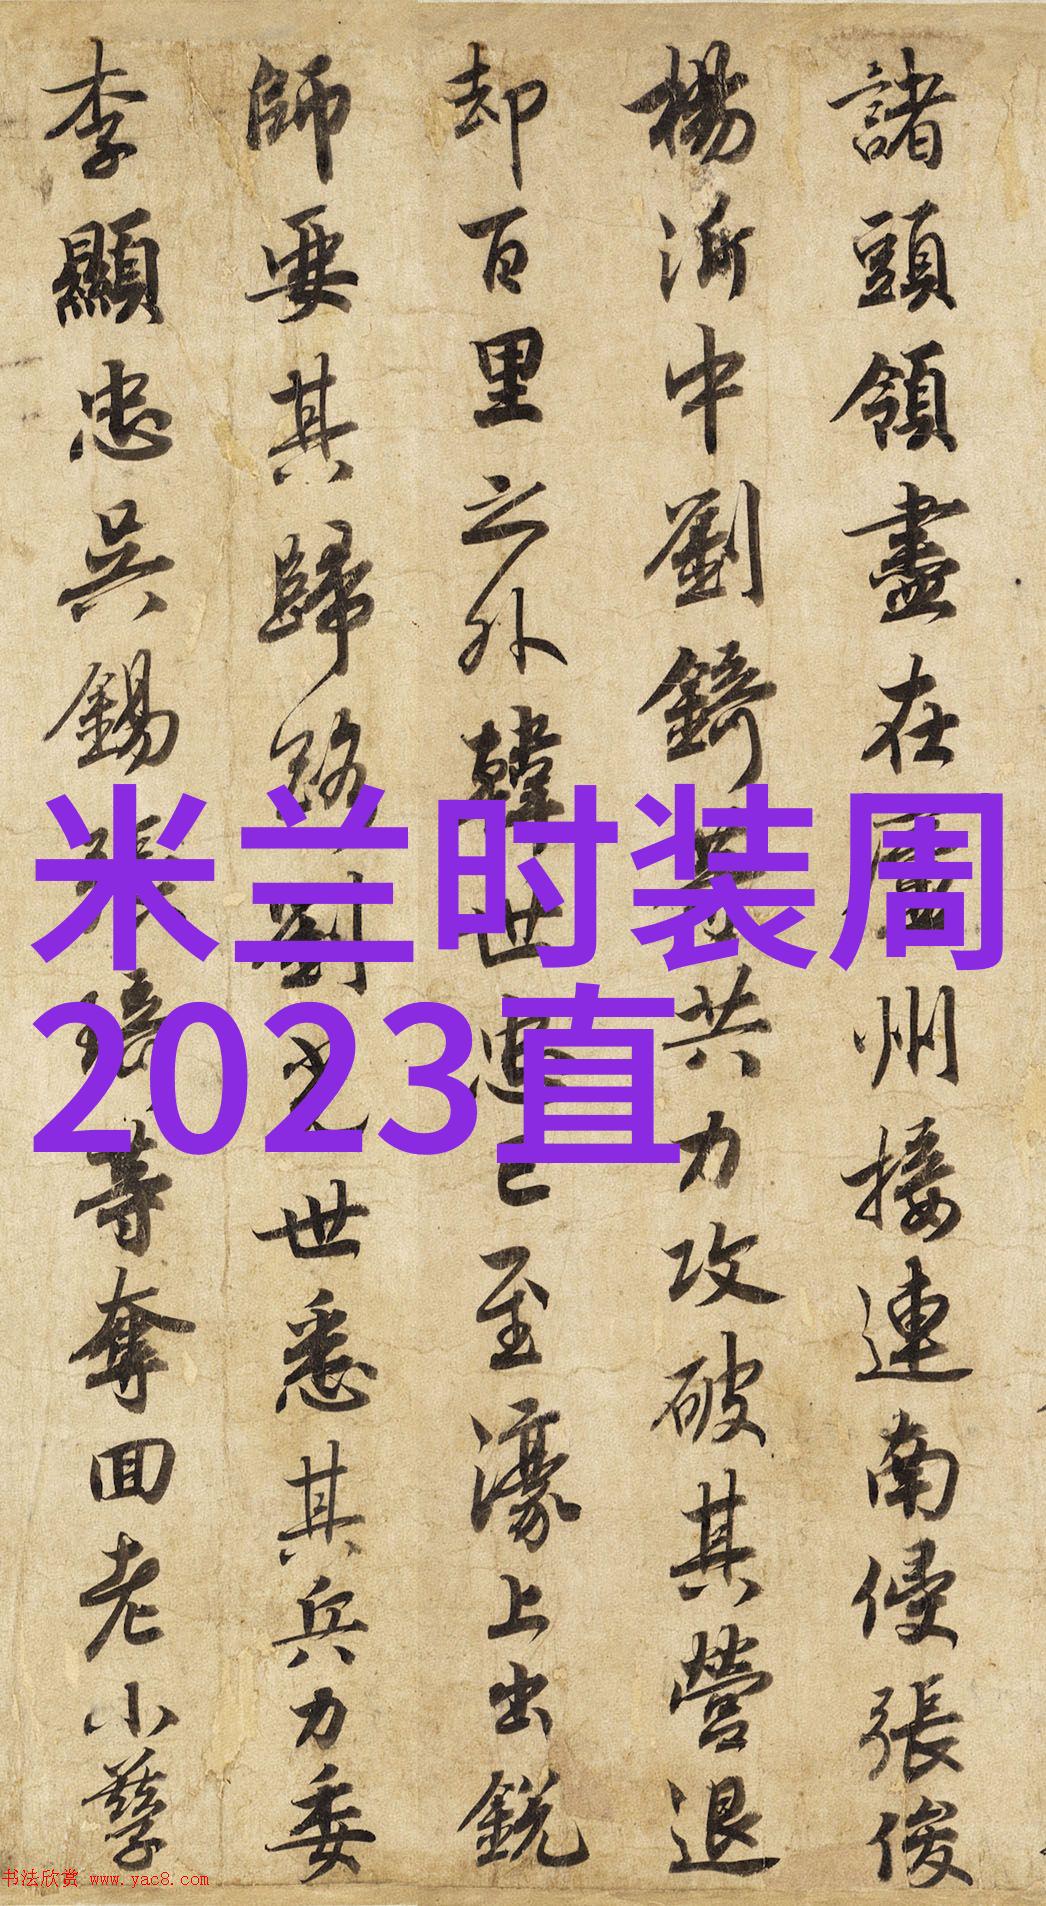 諸頭領盡在廬州接連南侵張俊
楊沂中劉錡等共力攻破其營退
却百里之外韓世忠已至濠上出銳
師要其歸路劉光世悉其兵力委
李顯忠吳錫張琦等奪回老小孳
米兰时装周
2023直
书法欣赏 www.yac8.com